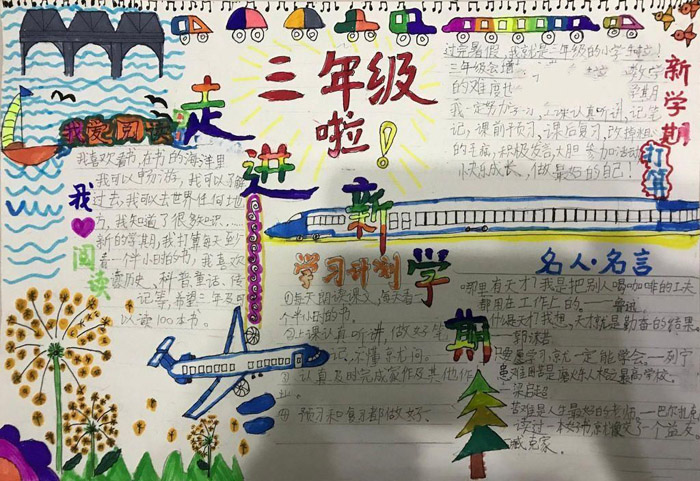 三年级
啦!
走进新学期
我爱阅读
我喜欢看书,在书的海洋里
我可以畅游,我可以了解
过去,我可以去世界任何地
方,我知道了很多知识……
新的学期,我打算每天至少
看一个小时的书,我喜欢
读历史、科普、童话、传
记等,希望三年级可
以读100本书。
我
阅读
新学期
打算
过完暑假,我就是三年级的小学生啦!
三年级会增
的难度也
我一定努力学习,上课认真听讲,记笔
记,课前预习、课后复习,改掉粗心
的毛病,积极发言,大胆参加活动
快乐成长,做最好的自己!
学习计划
①每天朗读课文,每天看一
个半小时的书。
②上课认真听讲,做好笔
记,不懂就问。
③认真及时完成家作及其他作
业。
④预习和复习都做好
名人·名言
哪里有天才?我是把别人喝咖啡的工夫
都用在工作上的。——鲁迅
什么是天才?我想,天才就是勤奋的结果。
郭沫若
只要愿学习,就一定能学会。——列宁
患难困苦是磨炼人格之最高学校。
梁启超
苦难是人生最好的老师。——巴尔扎克
读过一本好书,就像交了一个益友
臧克家